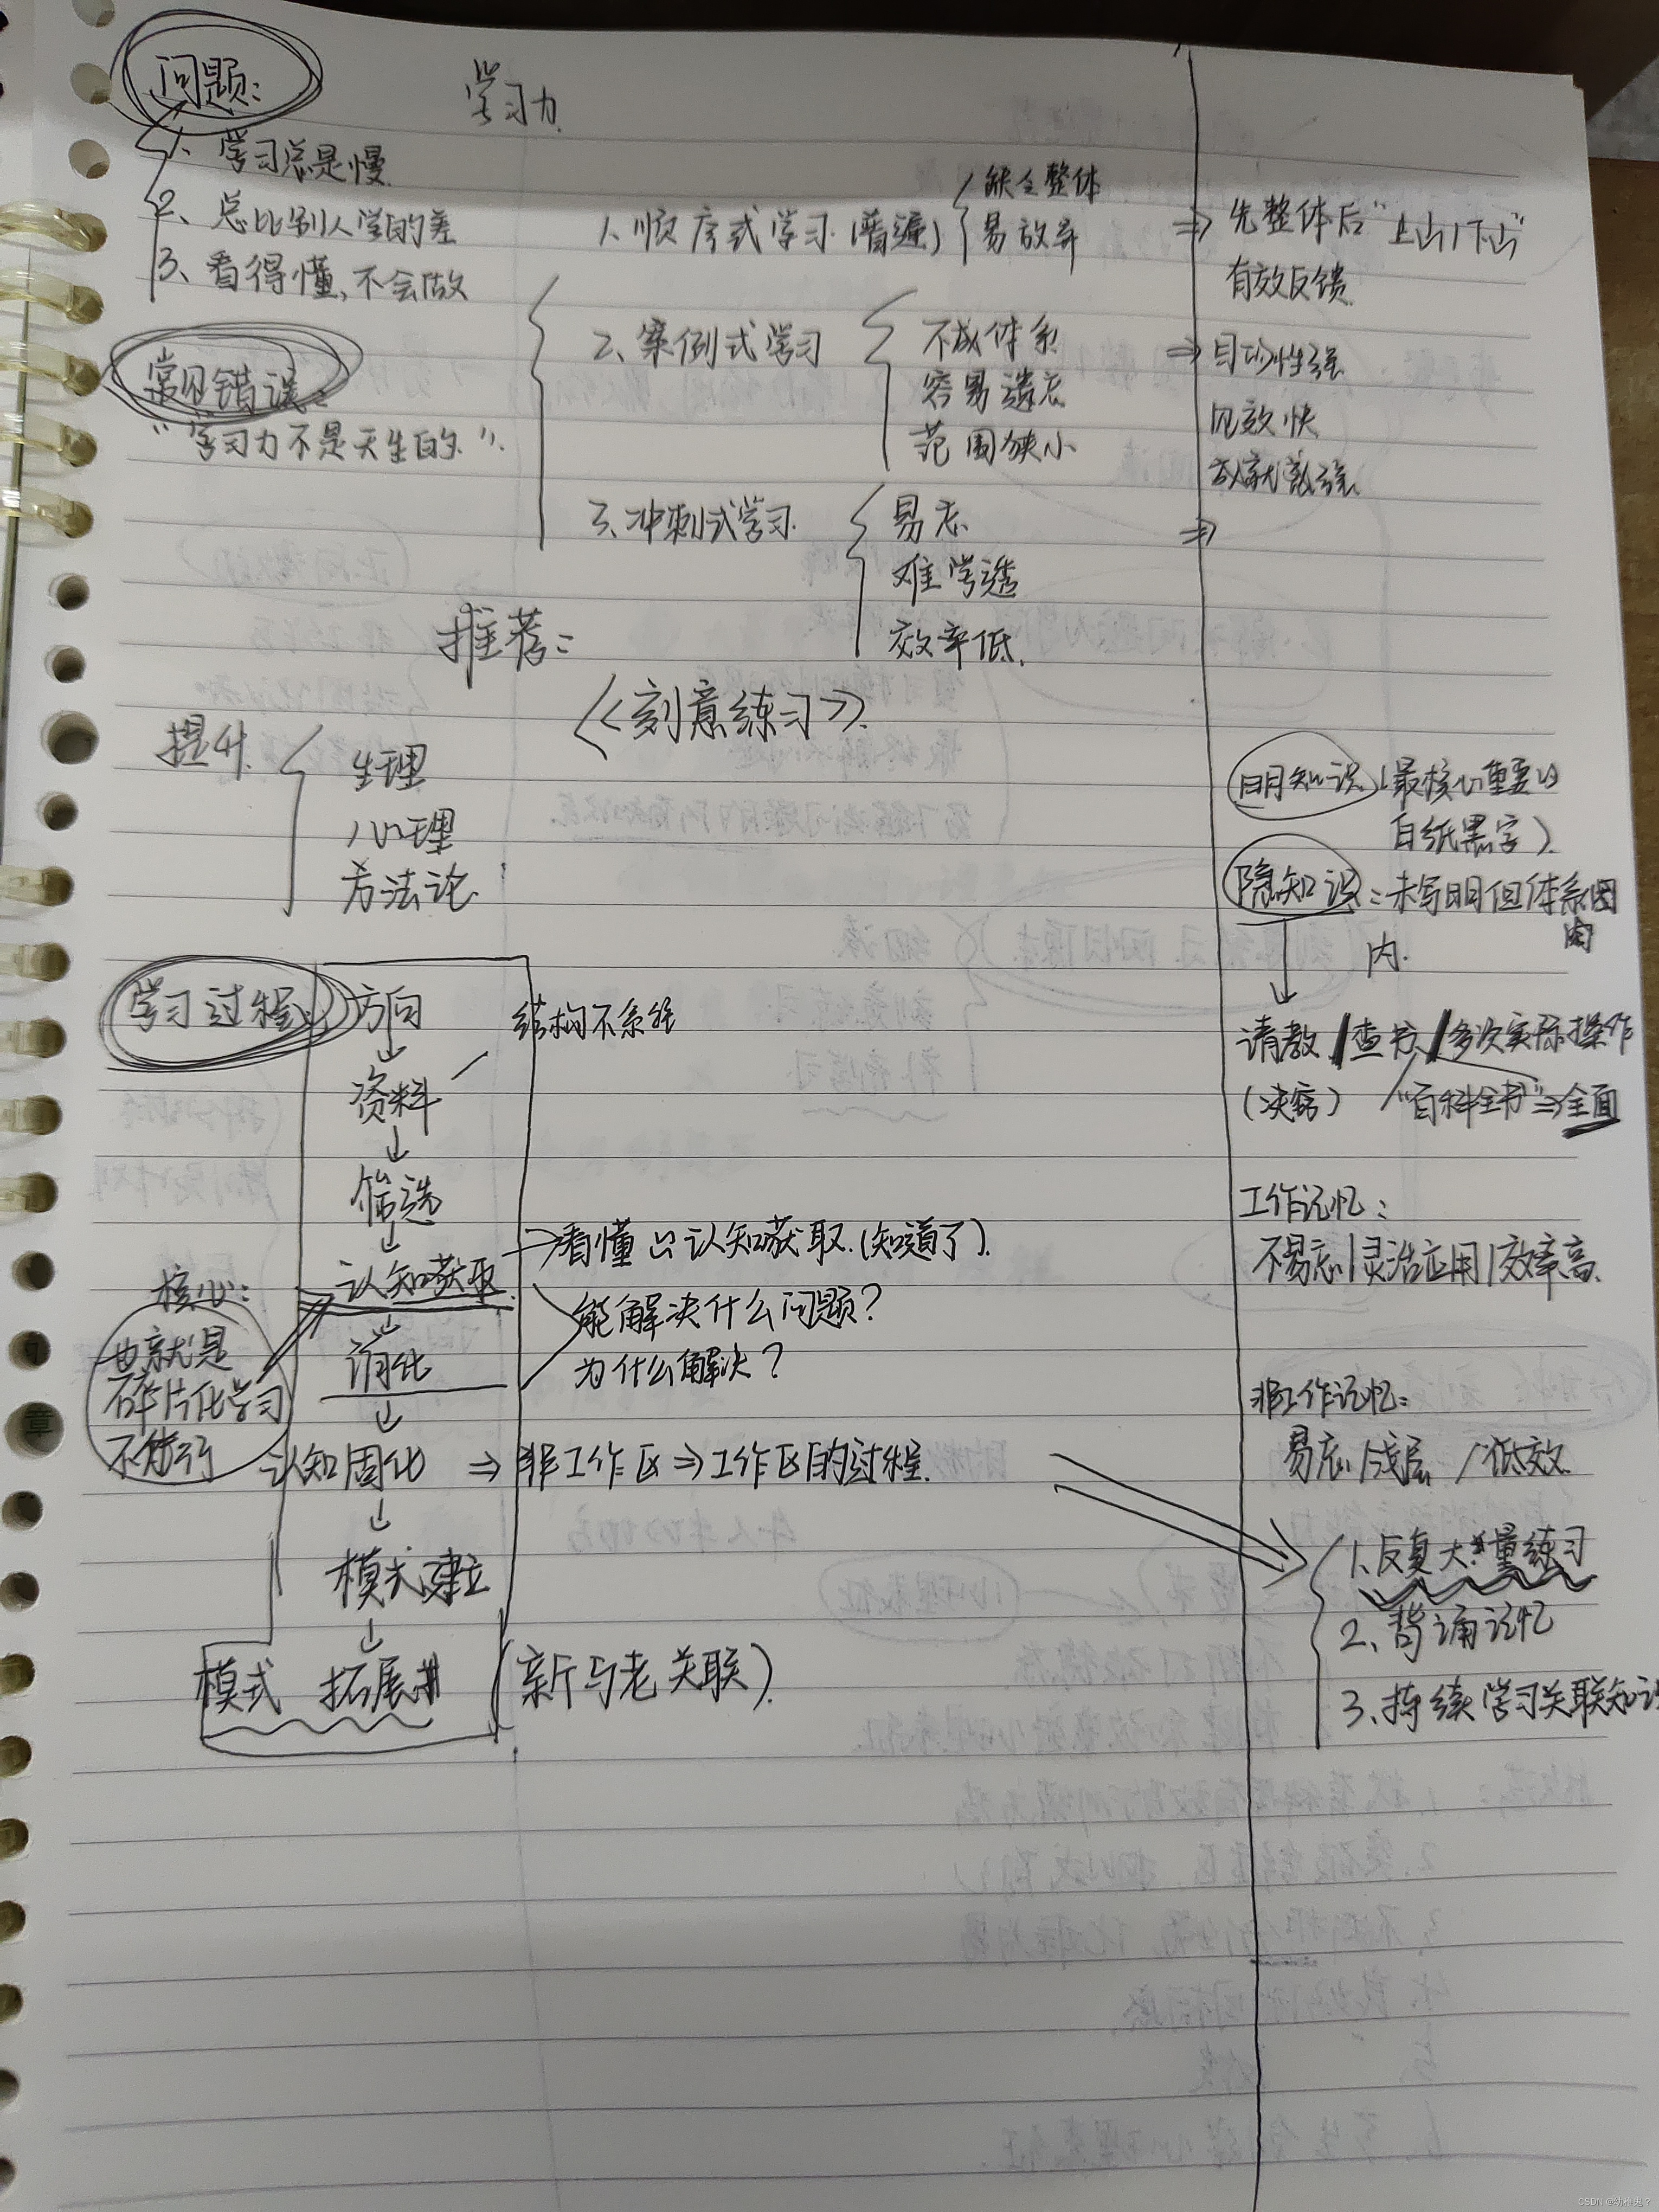 问题:
学习力
1、学习总是慢
2、总比别人学的差
3、看得懂,不会做
常见错误:
"学习力不是天生的".
1、顺序式学习(普遍)
缺乏整体
易放弃
⇒ 先整体后"上山/下山"
有效反馈
2、案例式学习
不成体系
容易遗忘
范围狭小
⇒ 目的性强
见效快
成就感强
3、冲刺式学习
易忘
难学透
效率低.
⇒
推荐:
《刻意练习》.
提升
生理
心理
方法论
明知识(最核心重要的
白纸黑字)
隐知识:未写明但体系图
内.
请教/查书/多次实际操作
(决窍) "百科全书"⇒全面
学习过程:
方向
↓
资料
结构不系统
↓
筛选
↓
认知获取
→看懂 认知获取.(知道了).
↓
消化
能解决什么问题?
为什么解决?
↓
认知固化 ⇒ 非工作区⇒工作区的过程.
↓
模式建立
↓
模式 拓展 (新与老关联).
核心:
也就是
碎片化学习
不行
工作记忆:
不易忘/灵活应用/效率高.
非工作记忆:
易忘/浅层/低效
1.反复大量练习
2、背诵记忆
3、持续学习关联知识
7
章
CSDN @幼稚鬼?